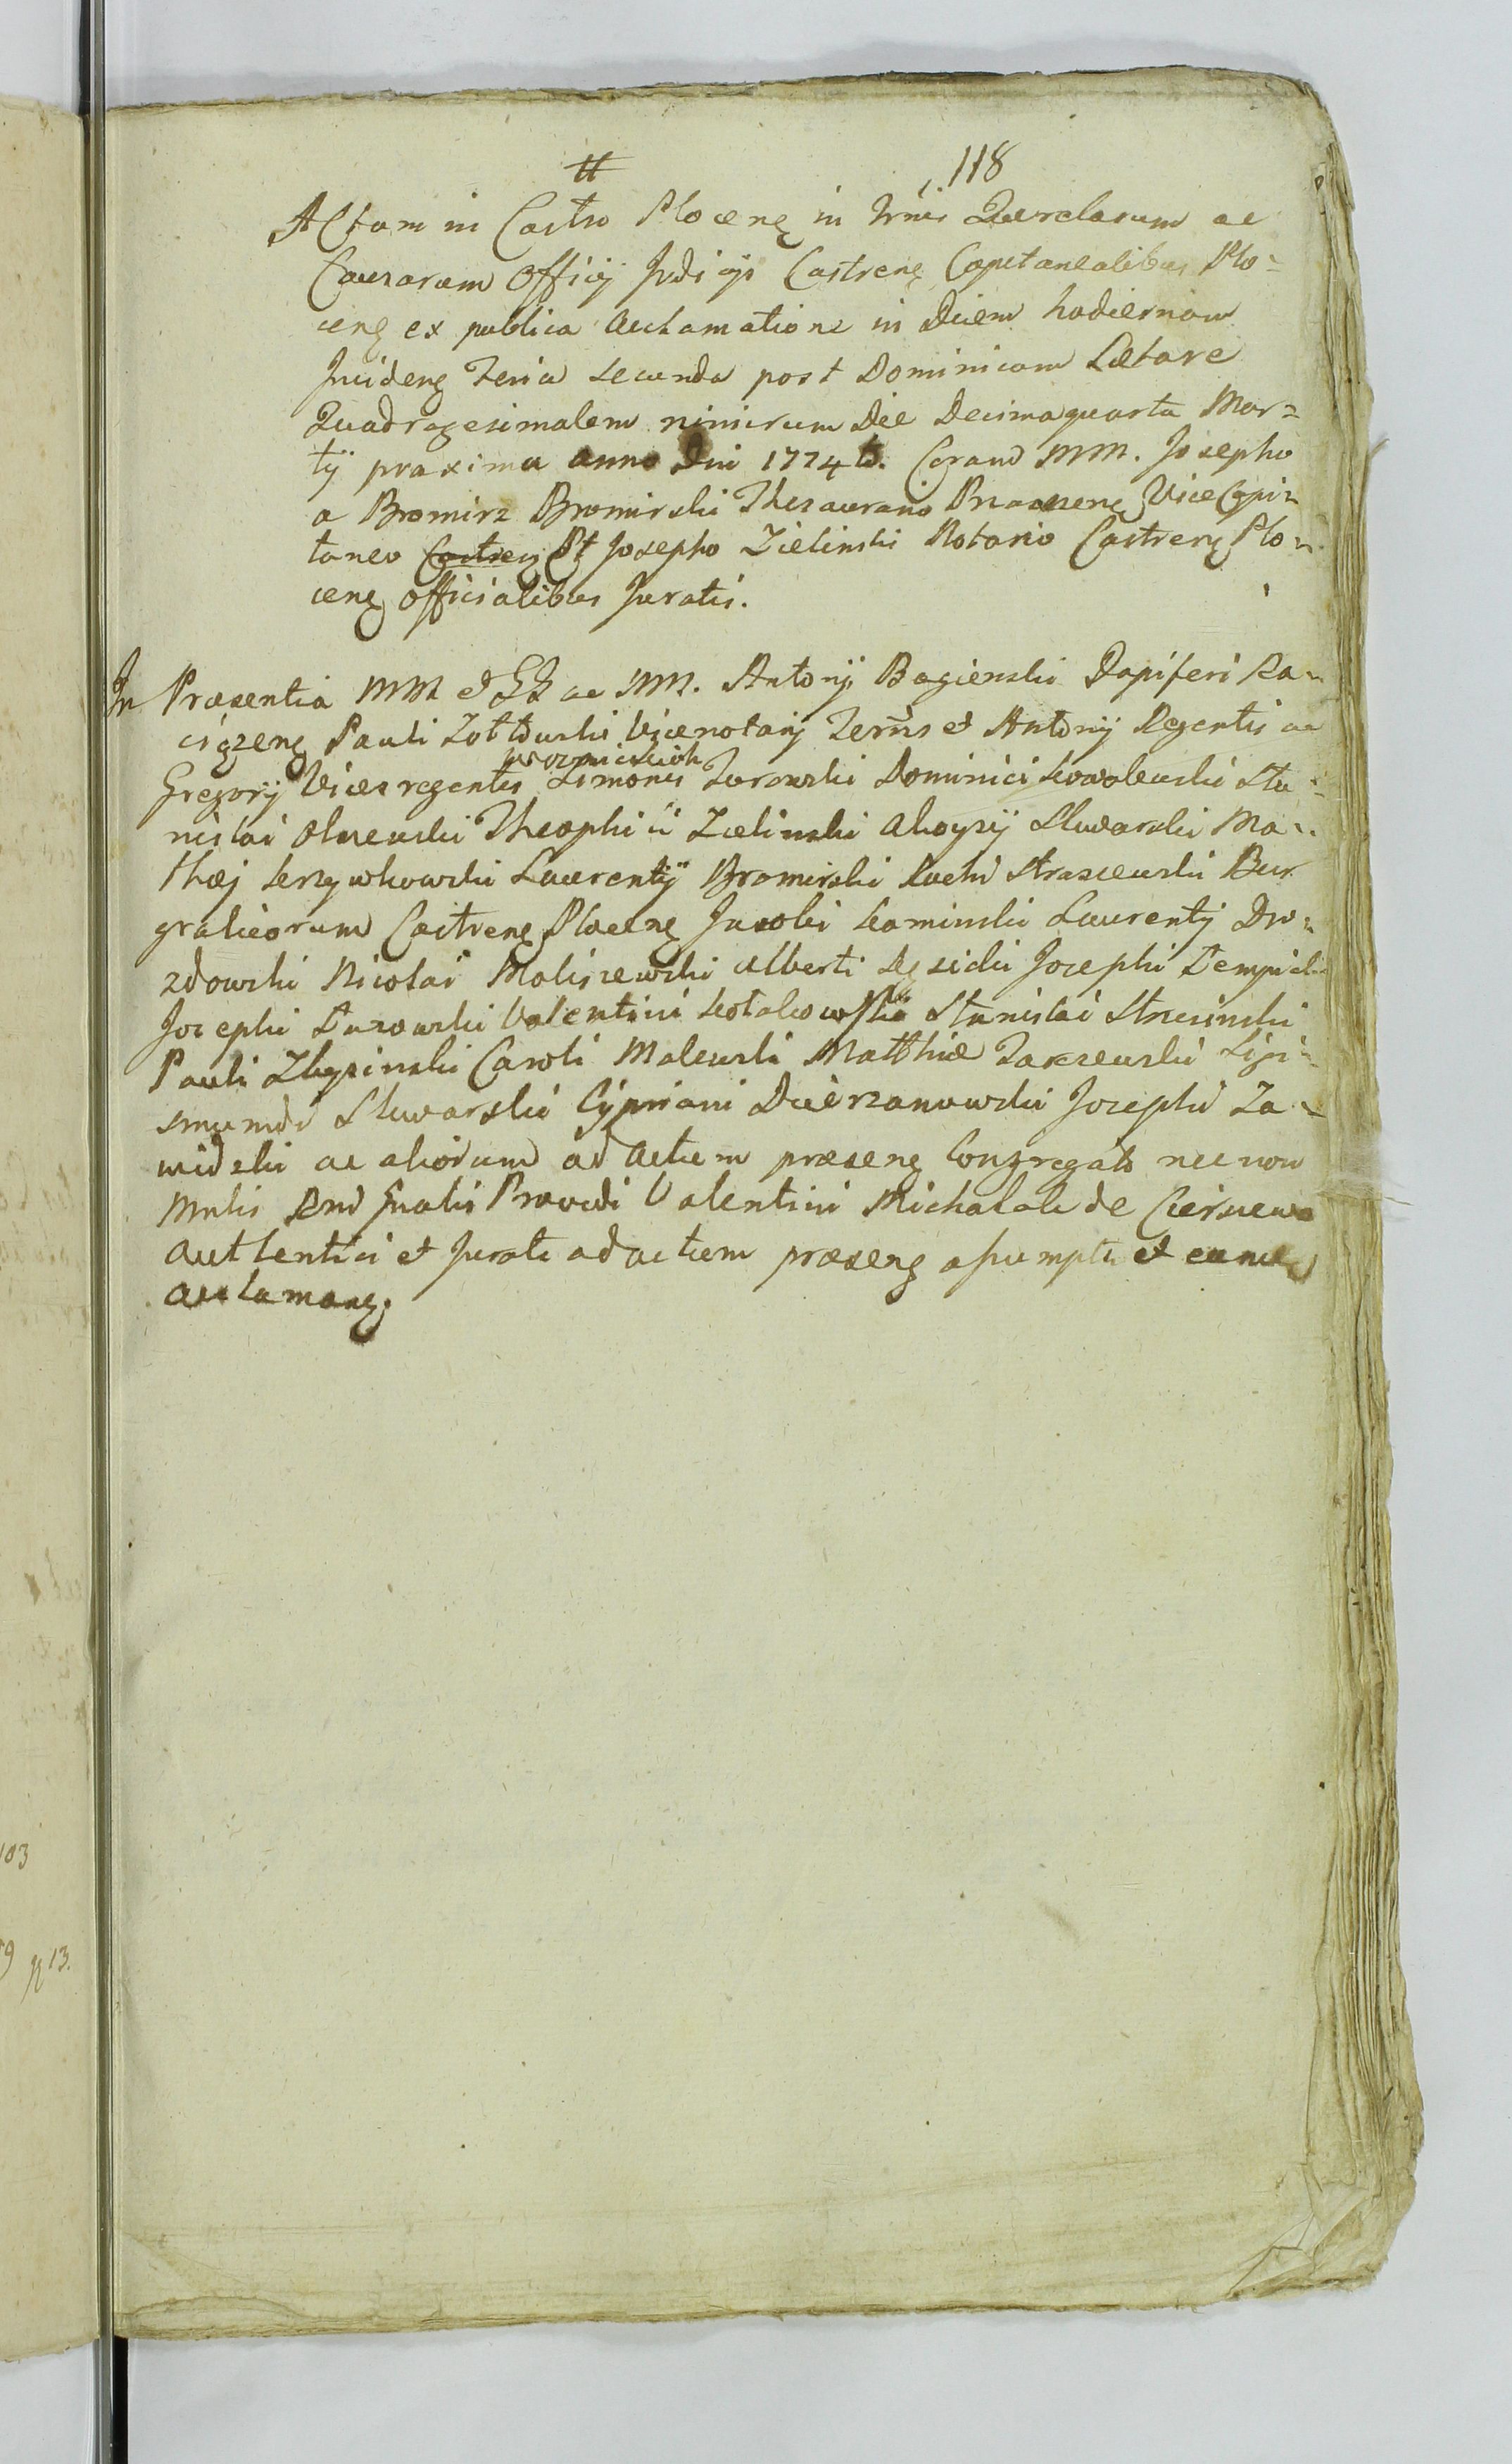 tt
118
Actum in Castro Plocenꝫ in Trnis Querelarum ac
Causarum Officij Judicijs Castrenꝫ Capitanealibus Plo-
cenꝫ ex publica acclamatione in Diem hodiernam
Incidenꝫ Feria secunda post Dominicam Lætare
Quadragesimalem nimirum Die Decimaquarta Mar-
tij proxima anno Dni 1774to. Coram MM. Josepho
a Bromirz Bromirski Thesaurario Vice Capi-
taneo Castrenꝫ Et Josepho Zielinski Notario Castrenꝫ Plo-
cenꝫ officialibus Juratis.
In Præsentia MM et GG ac NN. Antonij Bagienski Dapiferi Ra-
ciążenꝫ Pauli Zołtowski Vicenotarij Terris et Antonij Regentis ac
Gregorij Vices regentis Simonis Zurowski Dominici Kowalewski Sta-
nislai Olszewski Theophili Zielinski Aloysij Skwarski Ma-
thæj Laurentij Bromirski Rochi Straszewski Bur
grabiorum Castrenꝫ Plocenꝫ Jacobi Kaminski Laurentij Dro-
zdowski Nicolai Moliszewski Alberti Josephi Dempski
Josephi Valentini Stanislai
Pauli Caroli Malewski Matthiæ Zakrzewski Sigi-
smundi Skwarski Cypriani Dzierzanowski Josephi Za-
widzki ac aliorum ad actum præsenꝫ Congregato necnon
Mnlis Providi Valentini Michalak de
authentici et Jurati ad actum præsenꝫ assumpti et eum
acclamanꝫ.
103
19 13.